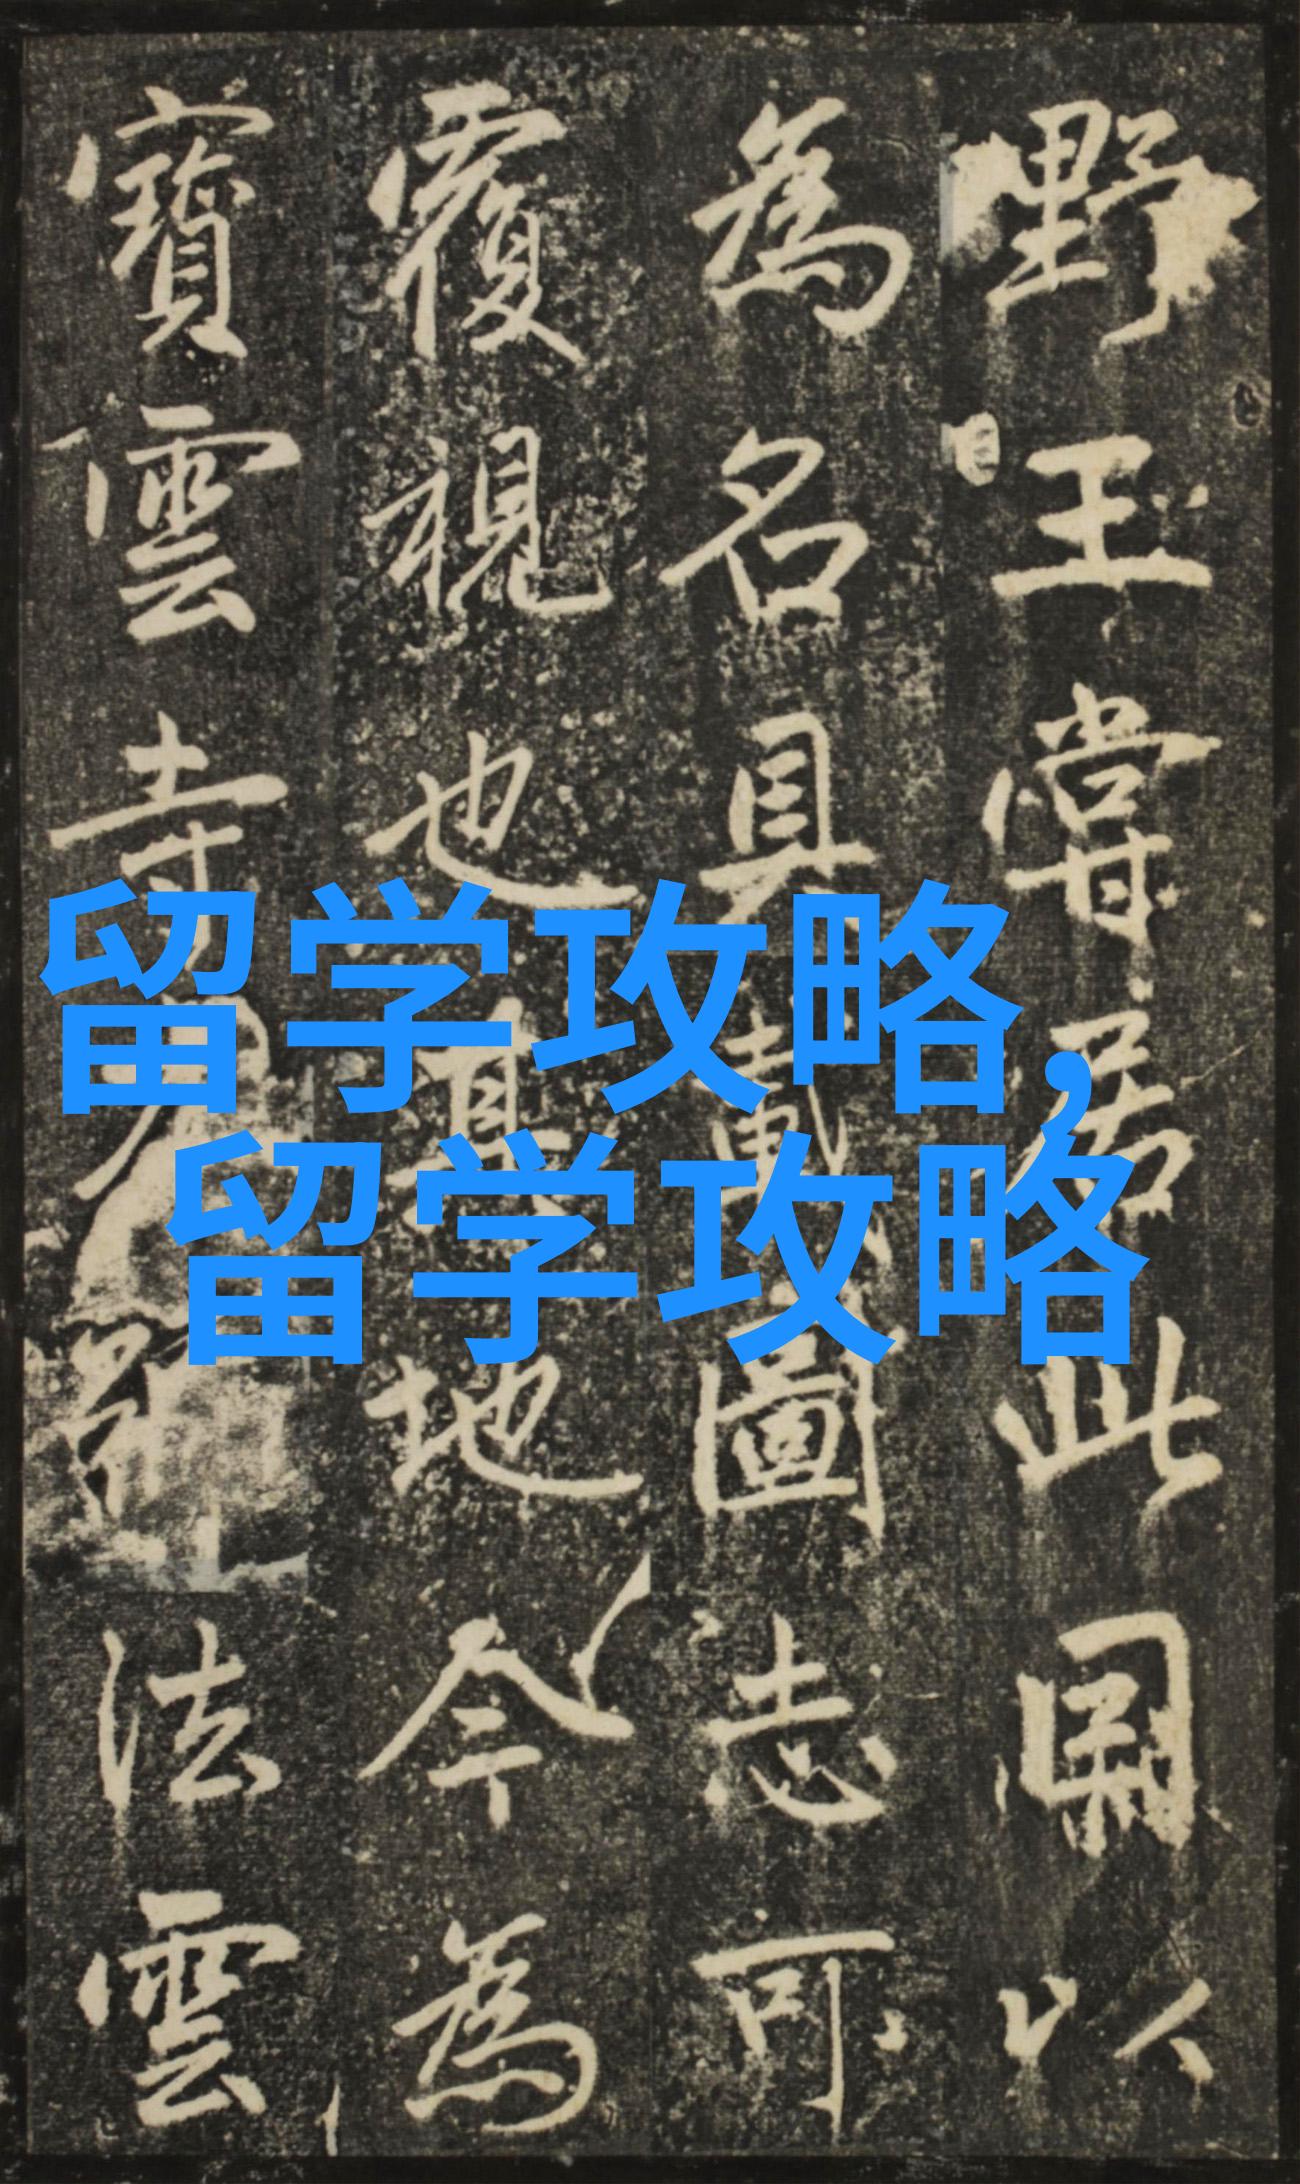 野王嘗居此因以
為名具載圖志可
覆視也其地今為
寶雲寺
法雲
留学攻略,
留学攻略